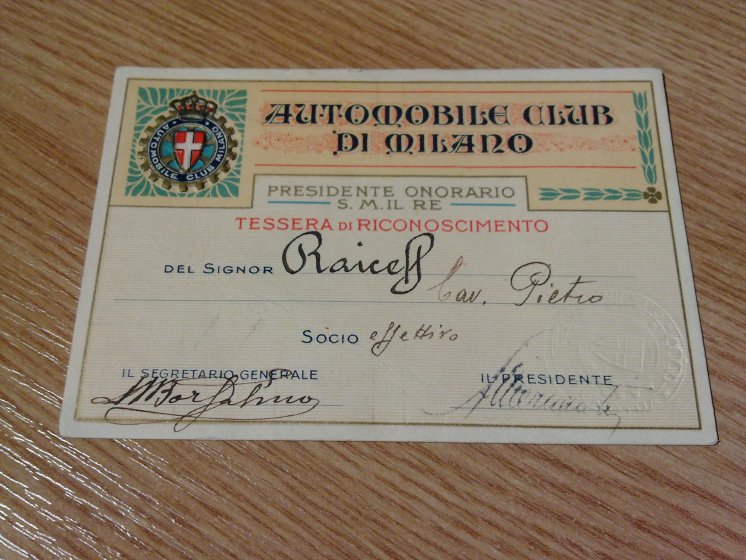 AUTOMOBILE CLUB
DI MILANO
AUTOMOBILE CLUB MILANO
PRESIDENTE ONORARIO
S. M. IL RE
TESSERA DI RICONOSCIMENTO
DEL SIGNOR
Cav. Pietro
SOCIO effettivo
IL SEGRETARIO GENERALE
IL PRESIDENTE